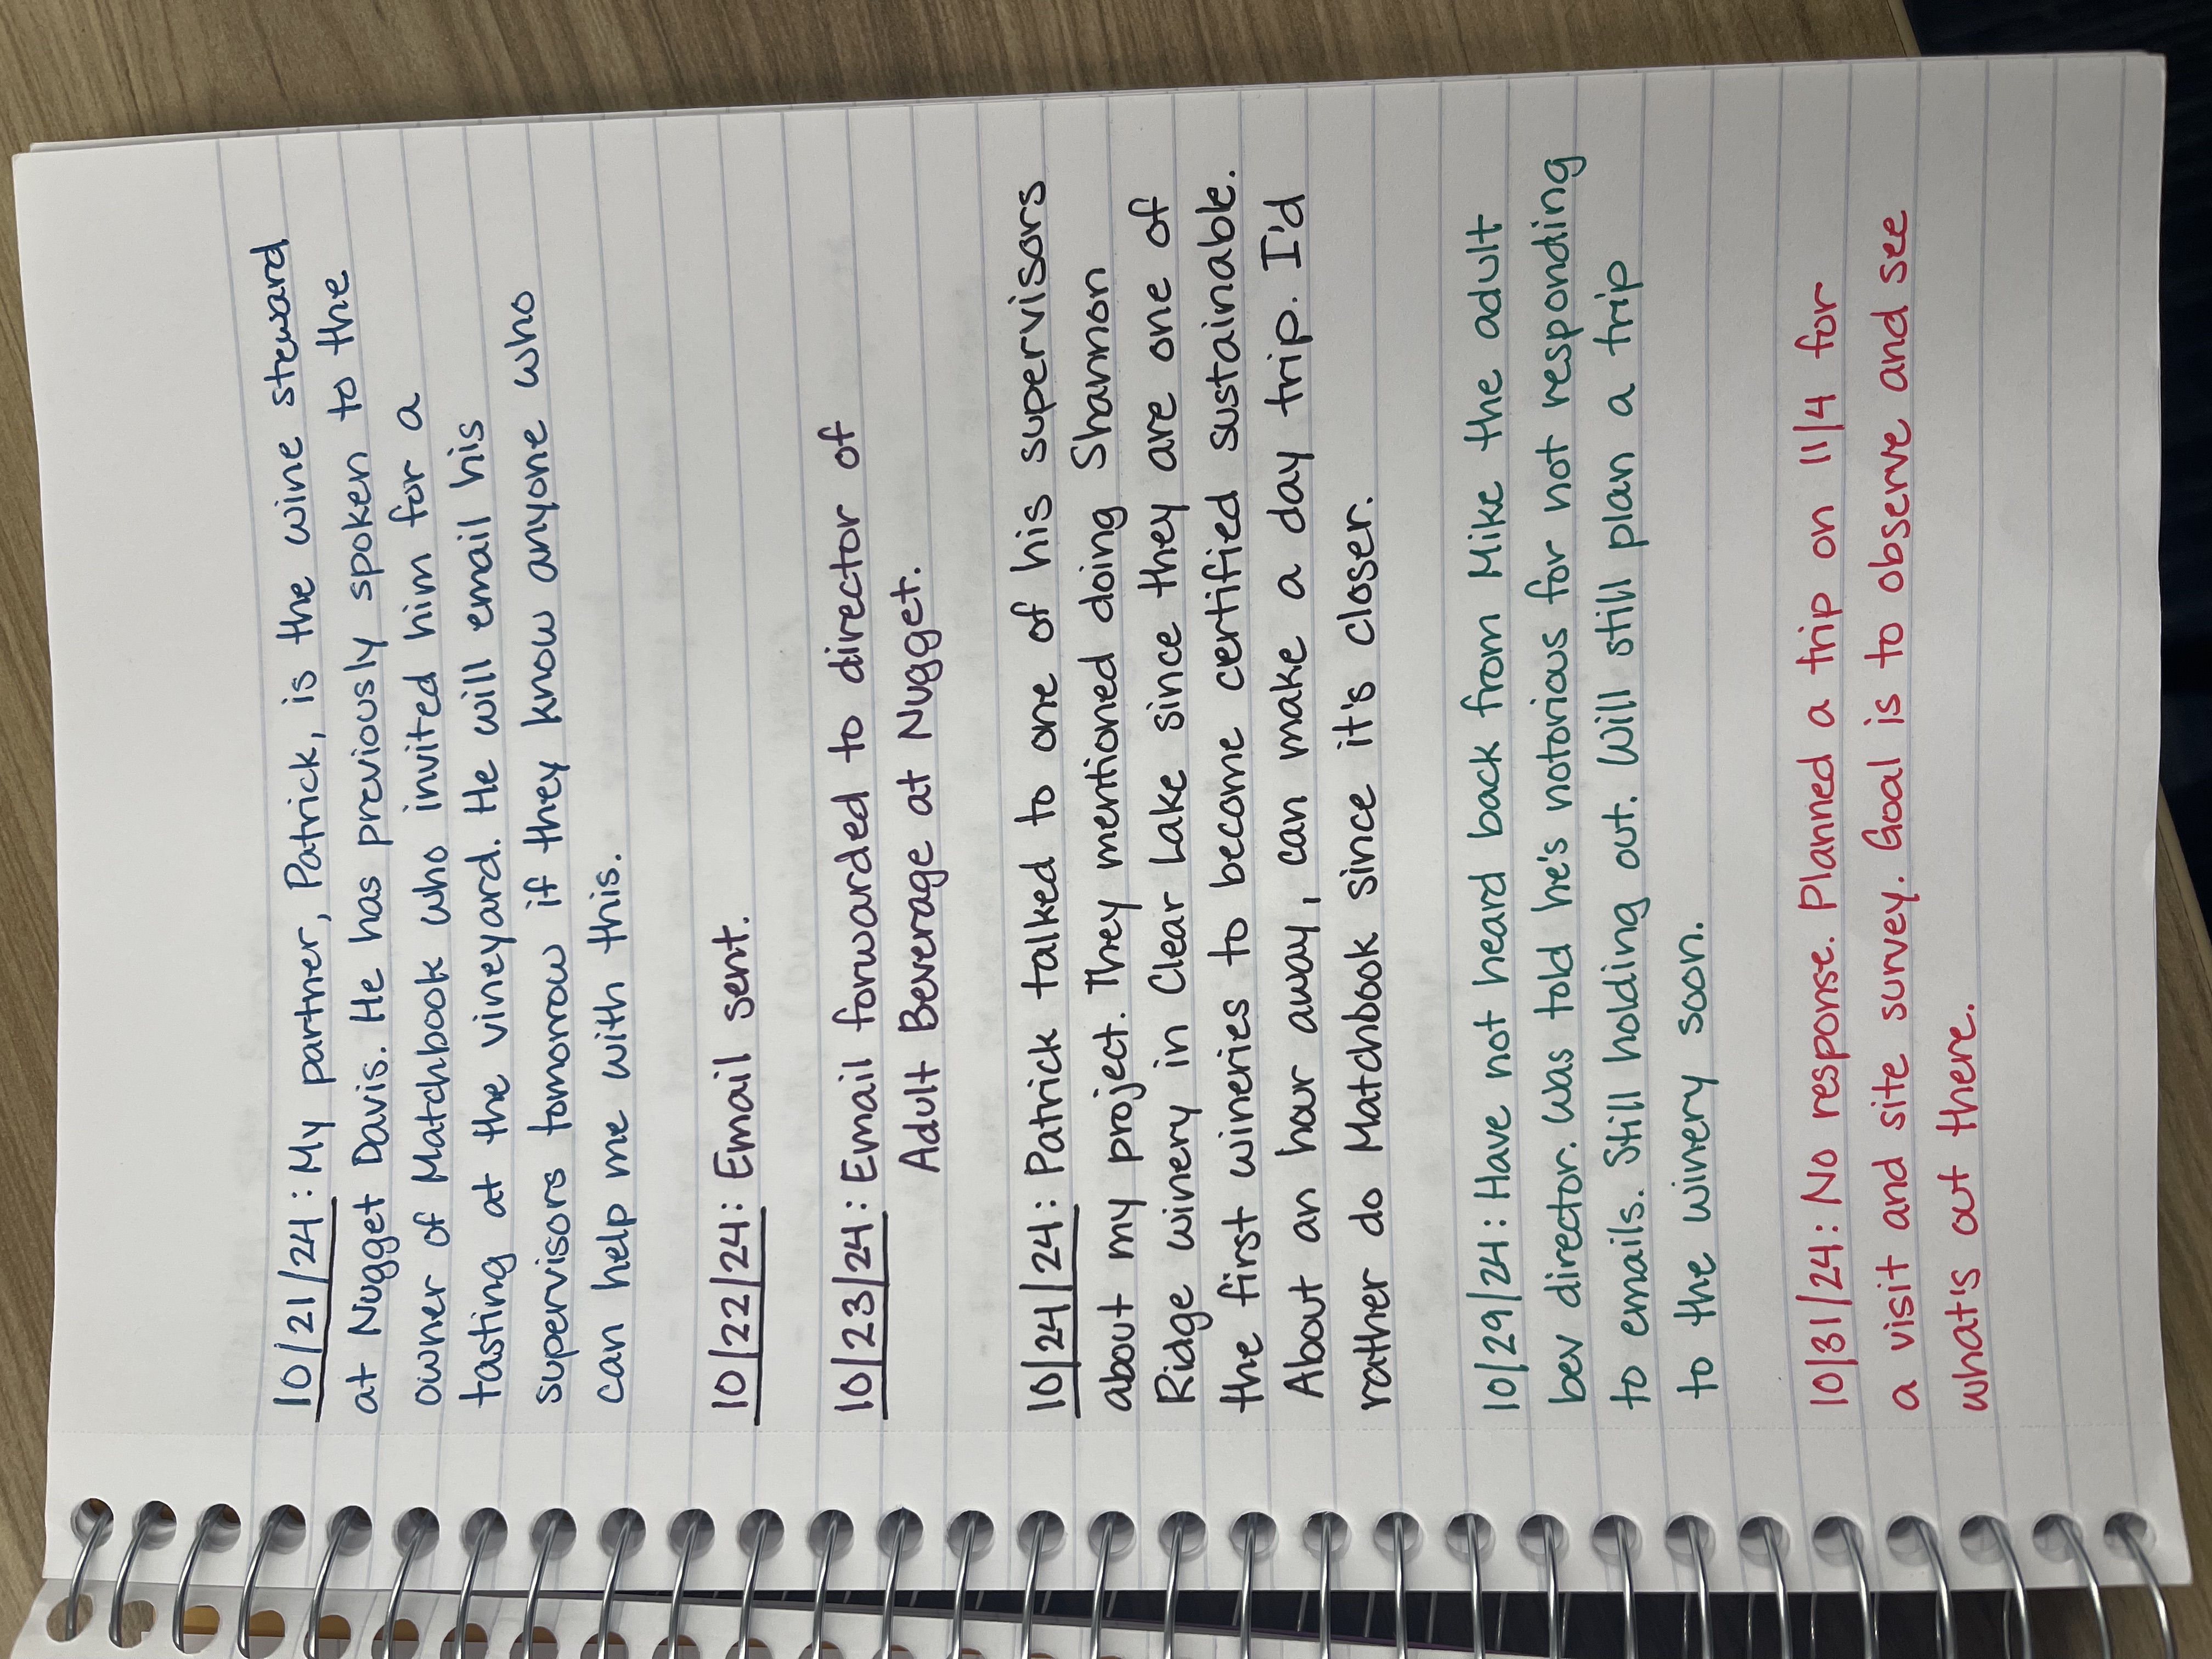 10/21/24: My partner, Patrick, is the wine steward
at Nugget Davis. He has previously spoken to the
owner of Matchbook who invited him for a
tasting at the vineyard. He will email his
supervisors tomorrow if they know anyone who
can help me with this.
10/22/24: Email sent.
10/23/24: Email forwarded to director of
Adult Beverage at Nugget.
10/24/24: Patrick talked to one of his supervisors
about my project. They mentioned doing Shannon
Ridge winery in Clear Lake since they are one of
the first wineries to become certified sustainable.
About an hour away, can make a day trip. I'd
rather do Matchbook since it's closer.
10/29/24: Have not heard back from Mike the adult
bev director. Was told he's notorious for not responding
to emails. Still holding out. Will still plan a trip
to the winery soon.
10/31/24: No response. Planned a trip on 11/4 for
a visit and site survey. Goal is to observe and see
what's out there.